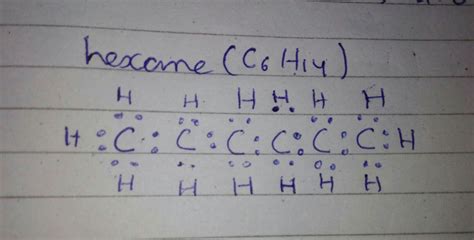 hexane (C6H14)
H H H H H H
H : C : C : C : C : C : C : H
H H H H H H